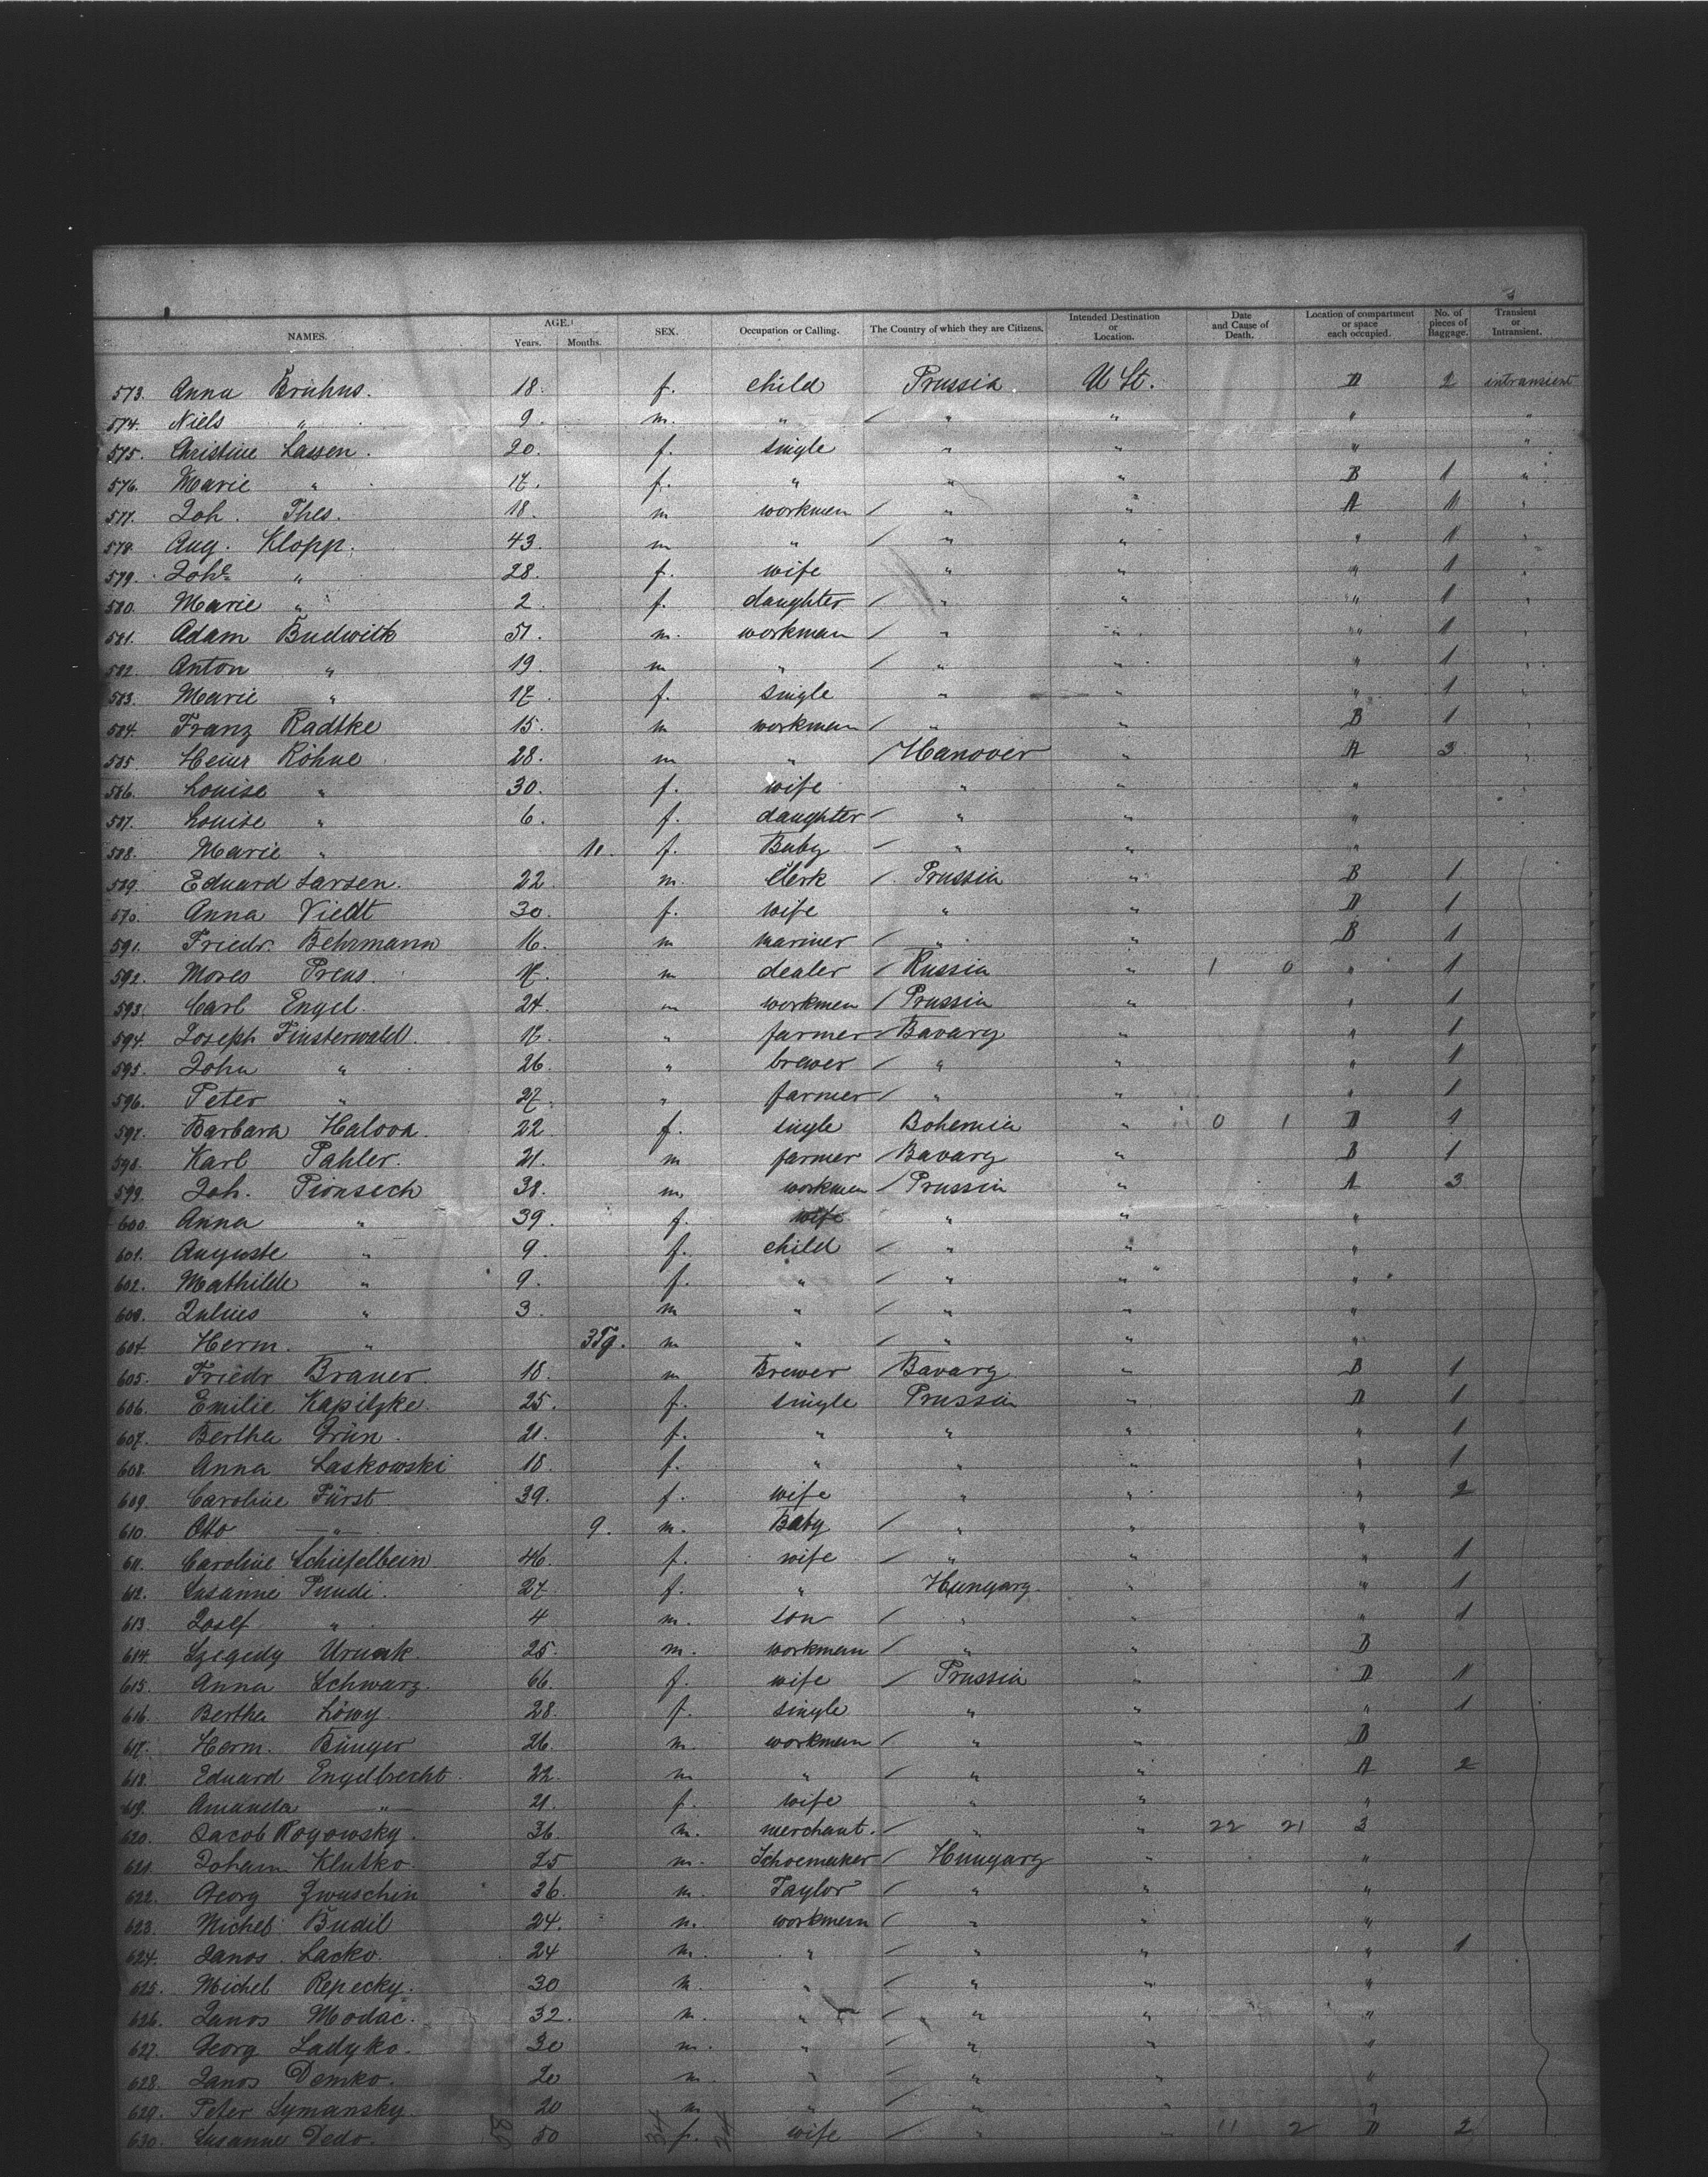 NAMES. AGE. Years. Months. SEX. Occupation or Calling. The Country of which they are Citizens. Intended Destination or Location. Date and Cause of Death. Location of compartment or space each occupied. No. of pieces of Baggage. Transient or Intransient.
573. Anna Bruhns. 18. f. child Prussia. U St. D 2 intransient
574. Niels " 9. m. " / " " " "
575. Christine Lassen. 20. f. single " " " "
576. Marie " 17. f. " " " B 1 "
577. Joh. Thes. 18. m workmen / " " A 1 "
578. Aug. Klopp. 43. m " / " " " 1 "
579. Johe " 28. f. wife " " " 1 "
580. Marie " 2. f. daughter / " " " 1 "
581. Adam Budwitk 51. m. workman / " " " 1 "
582. Anton " 19. m " / " " " 1 "
583. Marie " 17. f. single " " " 1 "
584. Franz Radtke 15. m workmen / " " B 1 "
585. Heinr Röhne 28. m " / Hanover " A 3 "
586. Louise " 30. f. wife " " "
587. Louise " 6. f. daughter / " " "
588. Marie " f. Baby / " " "
589. Eduard Larsen. 22. m. Clerk / Prussia " B 1
570. Anna Viedt 30. f. wife " " D 1
591. Friedr. Behrmann 16. m mariner / " " B 1
592. Moses Preus. 17. m dealer / Russia " 1 0 " 1
593. Carl Engel. 24. m workmen / Prussia " " 1
594. Joseph Finsterwald. 17. " farmer / Bavary " " 1
595. John " 26. " brewer / " " " 1
596. Peter " 27. " farmer / " " " 1
597. Barbara Halova. 22. f. single Bohemia " 0 1 D 1
598. Karl Pahler. 21. m farmer / Bavary " B 1
599. Joh. Pionsech 38. m. workmen / Prussia " A 3
600. Anna " 39. f. wife " " "
601. Auguste " 9. f. child / " " "
602. Mathilde " 9. f. " / " " "
603. Julius " 3. m " / " " "
604. Herm. " 3 Tg. m " / " " "
605. Friedr Brauer. 18. m Brewer / Bavary " B 1
606. Emilie Kapitzke. 25. f. single Prussia " D 1
607. Bertha Grün. 21. f. " " " " 1
608. Anna Laskowski 18. f. " " " " 1
609. Caroline Fürst 39. f. wife " " " 2
610. Otto " 9. m. Baby / " " "
611. Caroline Schiefelbein 46. f. wife / " " " 1
612. Susanne Puudi. 27. f. " Hungary. " " 1
613. Josef " 4 m. son / " " " 1
614. Szegedy Urnak. 25. m. workman / " " B
615. Anna Schwarz. 66. f. wife / Prussia " D 1
616. Bertha Löwy. 28. f. single " " " 1
617. Herm. Bünger 26. m. workmen / " " B
618. Eduard Engelbrecht. 22. m " / " " A 2
619. Amanda " 21. f. wife " " "
620. Jacob Rogowsky. 36. m. merchant. / " " 22 21 3
621. Johann Klutko. 25 m. Schoemaker / Hungary " "
622. Georg Zwuschin 36. m. Taylor / " " "
623. Michel Budil 24. m. workmen / " " "
624. Janos Lacko. 24 m. " / " " " 1
625. Michel Repecky. 30 m. " / " " "
626. Janos Modac. 32. m. " / " " "
627. Georg Ladyko. 30 m. " / " " "
628. Janos Demko. 20 m. " / " " "
629. Peter Symansky. 20 m. " / " " "
630. Susanne Dedo. 50 f. wife / " " 11 2 D 2